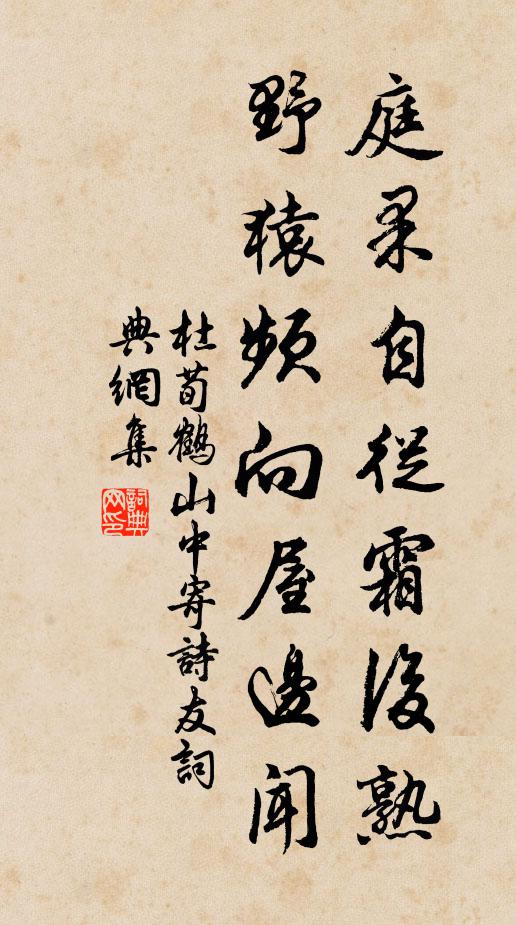 庭果自從霜後熟
野猿頻向屋邊聞
杜荀鶴山中寄詩友詞
典網集
詞典網印